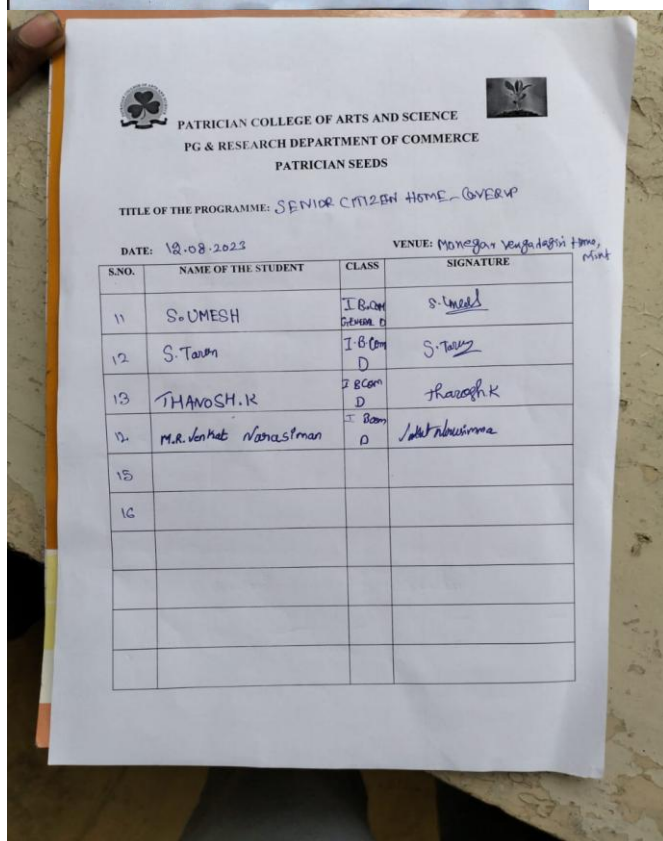 PATRICIAN COLLEGE OF ARTS AND SCIENCE
PG & RESEARCH DEPARTMENT OF COMMERCE
PATRICIAN SEEDS
TITLE OF THE PROGRAMME: SENIOR CITIZEN HOME - COVERUP
DATE: 12.08.2023 VENUE: Monegar Vengadagiri Home, Mint
S.NO. NAME OF THE STUDENT CLASS SIGNATURE
11 S. UMESH I B.COM GENERAL D S. Umesh
12 S. Tarun I.B.Com D S. Tarun
13 THANOSH.K I BCom D Thanosh.K
12. M.R. Venkat Narasiman I Bcom D
15
16